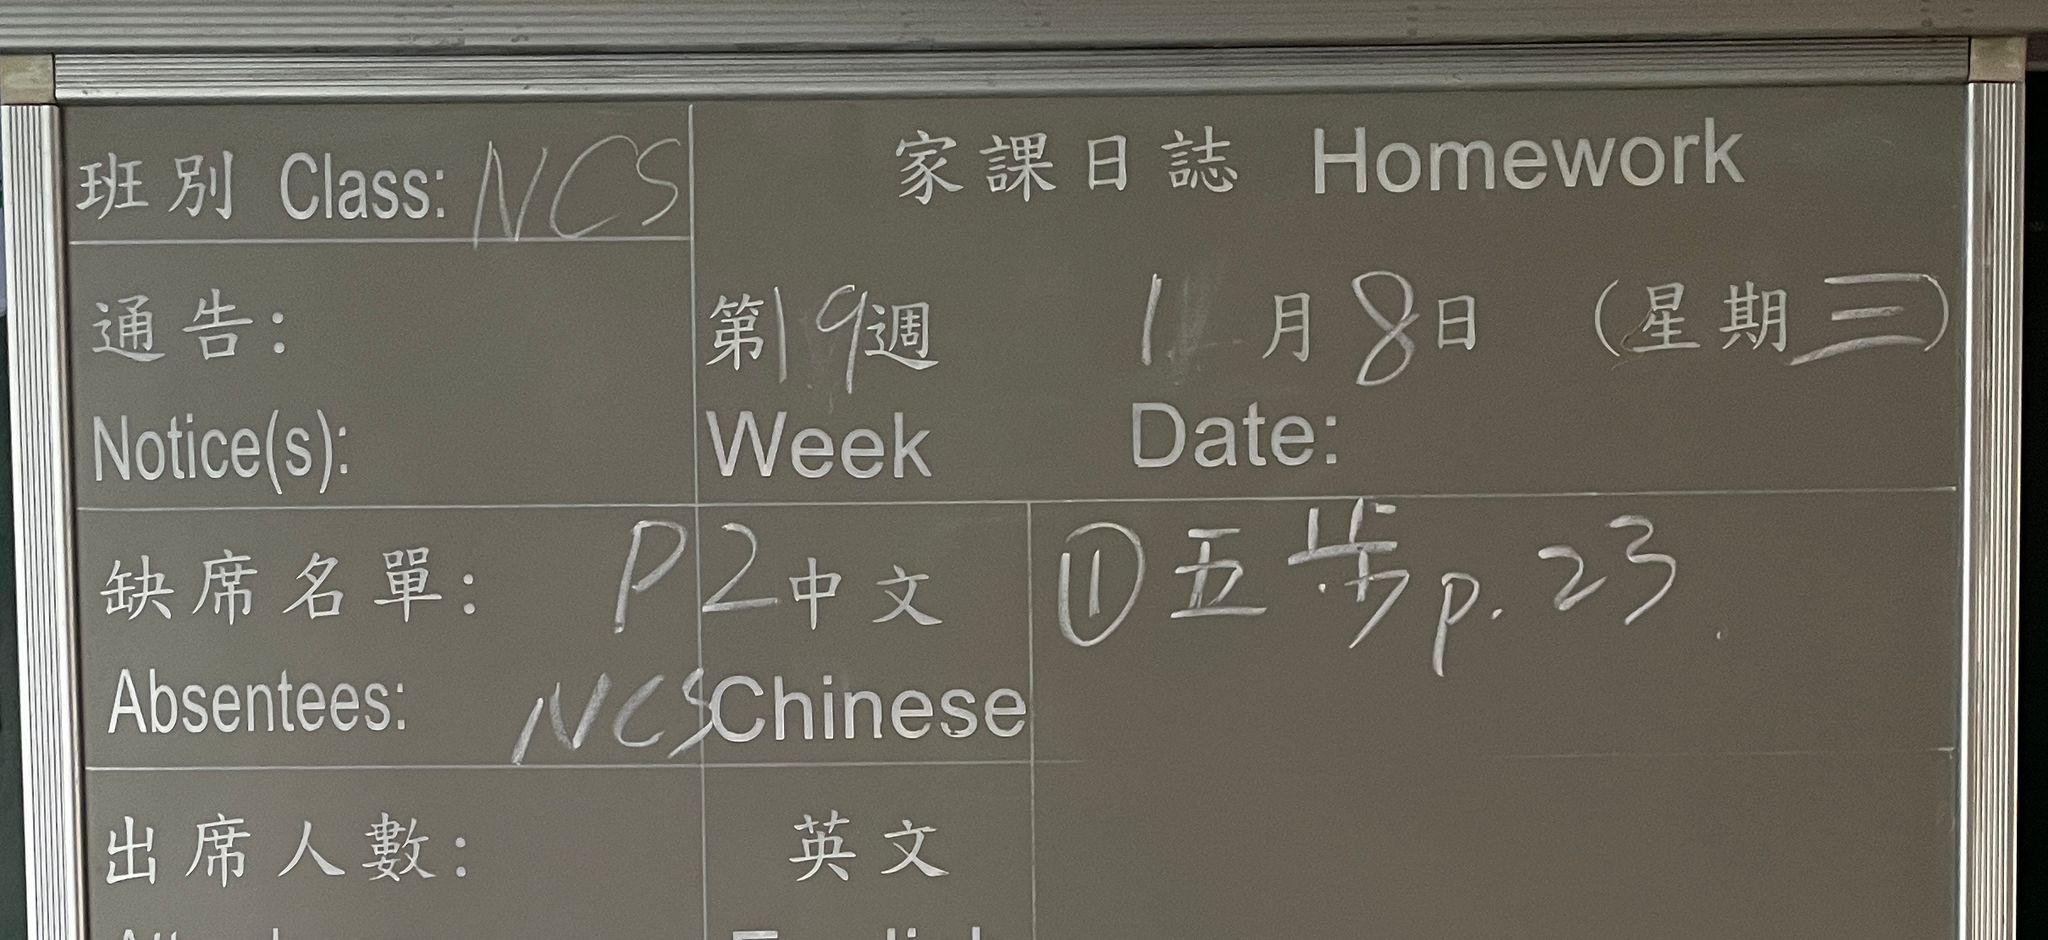 班別 Class: NCS
家課日誌 Homework
通告:
第19週 1月8日 (星期三)
Notice(s):
Week Date:
缺席名單: P2
中文 ①五步p.23.
Absentees: NCS
Chinese
出席人數:
英文